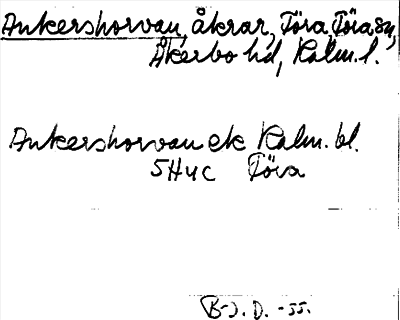 Ankershorvan, åkrar, Föra, Föra sn,
Åkerbo hd, Kalm. l.
Ankershorvan ek Kalm. bl.
5H4c Föra
B-J. D. -55.